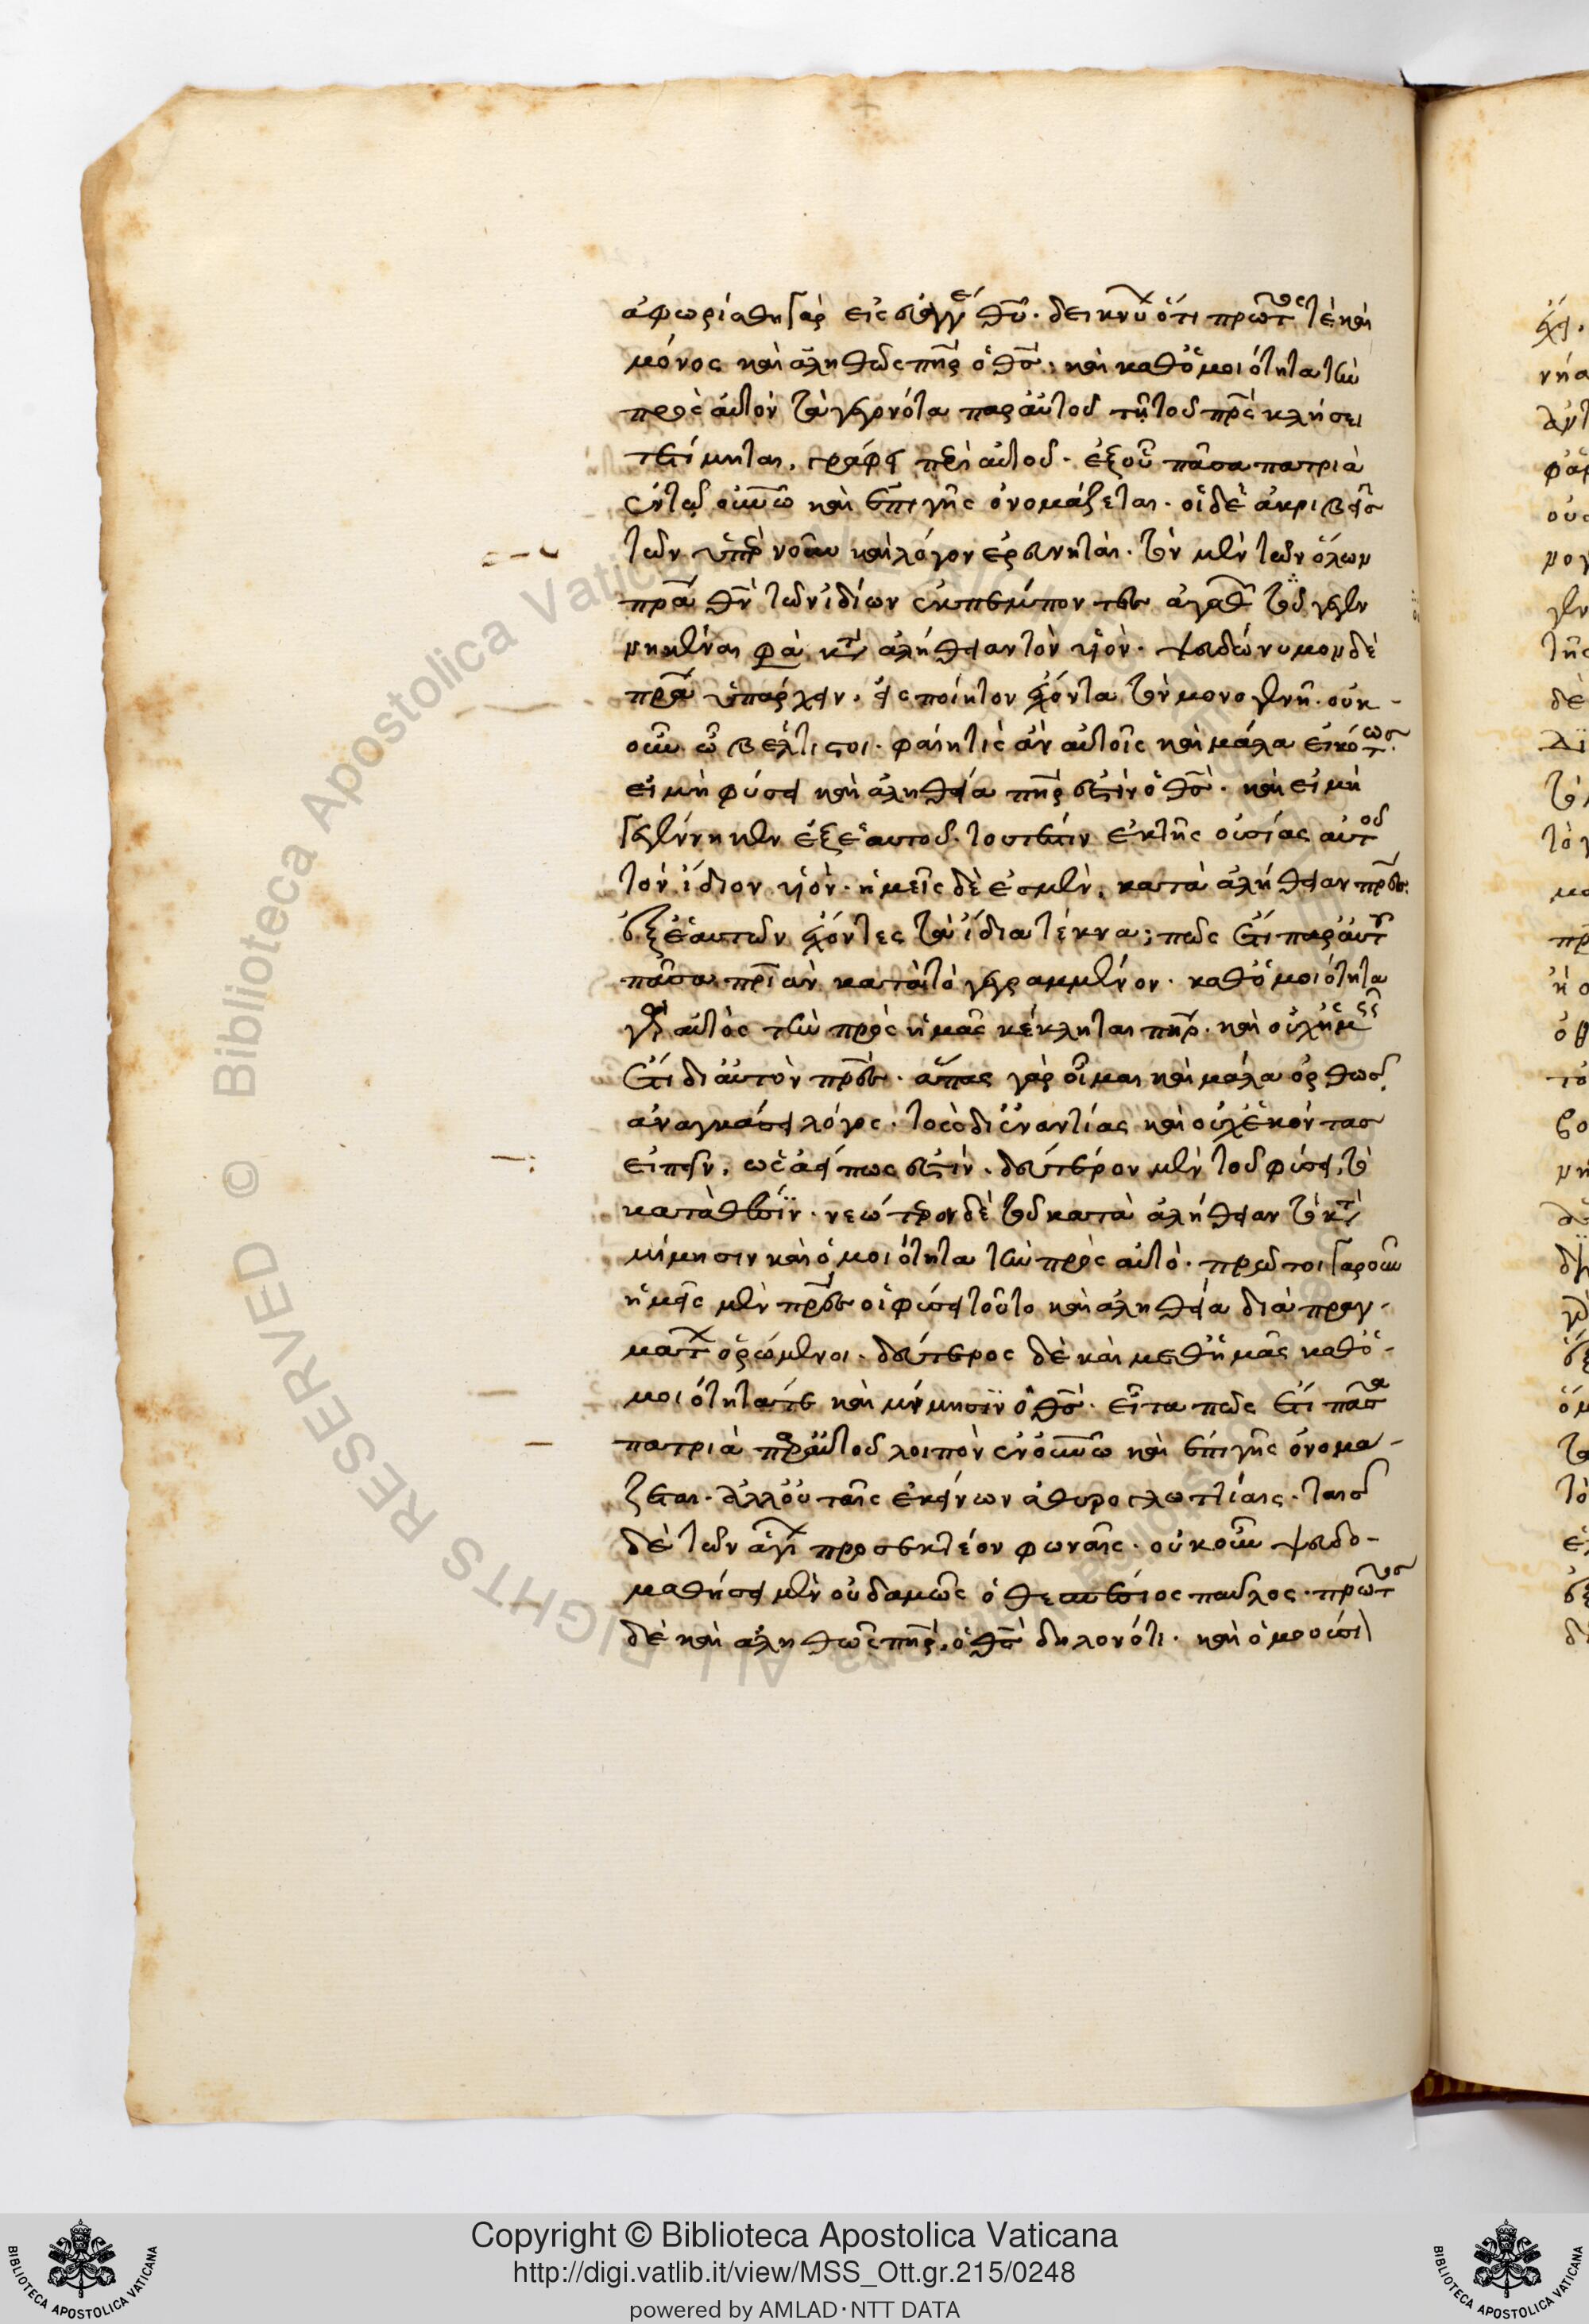 ἀφωρίσθη γὰρ εἰς εὐαγγέ θυ· δεικνὺ ὅτι πρώτως τὲ καὶ
μόνος καὶ ἀληθῶς πηρ ὁ θς· καὶ καθ' ὁμοιότητα τὴν
πρὸς αὐτὸν τὰ γεγονότα παρ' αὐτοῦ τῇ τοῦ πρς κλήσει
τετίμηται. γράφει περὶ αὐτοῦ· ἐξ οὗ πᾶσα πατριὰ
ἐν τῷ οὐνῶ καὶ ἐπὶ γῆς ὀνομάζεται· οἱ δὲ ἀκριβεῖς
τῶν ὑπὲρ νοῦν καὶ λόγον ἐρευνηταί· τὸν μὲν τῶν ὅλων
πρα θν τῶν ἰδίων ἐκπέμποντες ἀγαθῶν τοῦ γεγεν
νηκέναι φα κατὰ ἀλήθειαν τὸν υἱόν· ψευδώνυμον δὲ
πρα ὑπάρχειν, εἰσποίητον ἔχοντα τὸν μονογενῆ· οὐκ-
οῦν ὦ βέλτιστοι· φαίη τὶς ἂν αὐτοῖς καὶ μάλα εἰκότως·
εἰ μὴ φύσει καὶ ἀληθεία πηρ ἐστὶν ὁ θς· καὶ εἰ μὴ
γεγέννηκεν ἐξ ἑαυτοῦ· τουτέστιν ἐκ τῆς οὐσίας αὐτοῦ
τὸν ἴδιον υἱόν· ἡμεῖς δὲ ἐσμὲν, κατὰ ἀλήθειαν πρες·
ἐξ ἑαυτῶν ἔχοντες τὰ ἴδια τέκνα; πῶς ἔτι παρ' αὐτοῦ
πᾶσα πριὰν κατὰ τὸ γεγραμμένον· καθ' ὁμοιότητα
γὰρ αὐτὸς τὴν πρὸς ἡμᾶς κέκληται πηρ· καὶ οὐχ ἡμεῖς
ἔτι δι' αὐτὸν πρες· ἅπας γὰρ οἶμαι καὶ μάλα ὀρθῶς
ἀναγκάσει λόγος· τοὺς δι' ἐναντίας καὶ οὐχ ἑκόντας
εἰπεῖν, ὡς ἀεί πως ἐστὶν· δεύτερον μὲν τοῦ φύσει, τὸ
κατὰ θέσϊν· νεώτερον δὲ τοῦ κατὰ ἀλήθειαν τὸ κατὰ
μίμησιν καὶ ὁμοιότητα τὴν πρὸς αὐτό· πρῶτοι γὰρ οὖν
ἡμεῖς μὲν πρες οἱ φύσει τοῦτο καὶ ἀληθεία διὰ πραγ-
μάτων ὁρώμενοι· δεύτερος δὲ καὶ μεθ' ἡμᾶς καθ' ὁ-
μοιότητά τε καὶ μίμησϊν ὁ θς· εἶτα πῶς ἔτι πᾶσα
πατριὰ παρ' αὐτοῦ λοιπὸν ἐν οὐνῶ καὶ ἐπὶ γῆς ὀνομά-
ζεται· ἀλλ' οὐ ταῖς ἐκείνων ἀθυροστωμίαις· ταῖς
δὲ τῶν ἁγίων προσεκτέον φωναῖς· οὐκοῦν ψευδο-
μαθήσει μὲν οὐδαμῶς ὁ θεσπέσιος παῦλος· πρώτως
δὲ καὶ ἀληθῶς πηρ, ὁ θς δηλονότι· καὶ ὁμοουσί
Copyright © Biblioteca Apostolica Vaticana
http://digi.vatlib.it/view/MSS_Ott.gr.215/0248
powered by AMLAD·NTT DATA
BIBLIOTECA APOSTOLICA VATICANA
BIBLIOTECA APOSTOLICA VATICANA